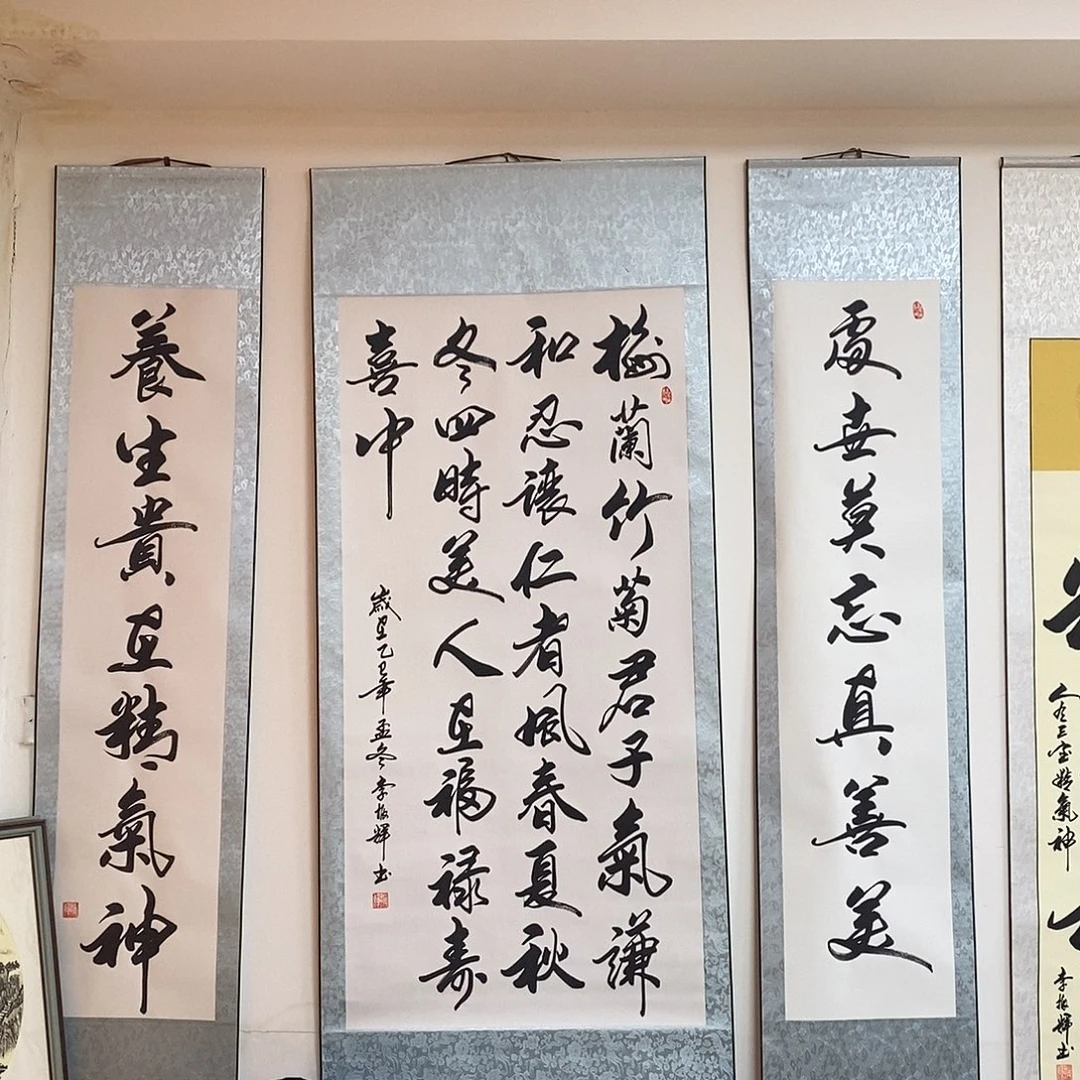 人有三宝精氣神
李振輝书
處世莫忘真善美
梅蘭竹菊君子氣謙
和忍讓仁者風春夏秋
冬四時美人在福禄壽
喜中
歲在乙巳年孟冬李振輝书
養生貴在精氣神